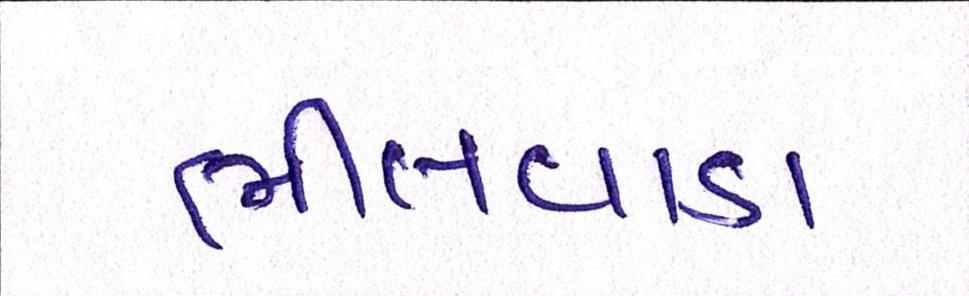 ભીલવાડા